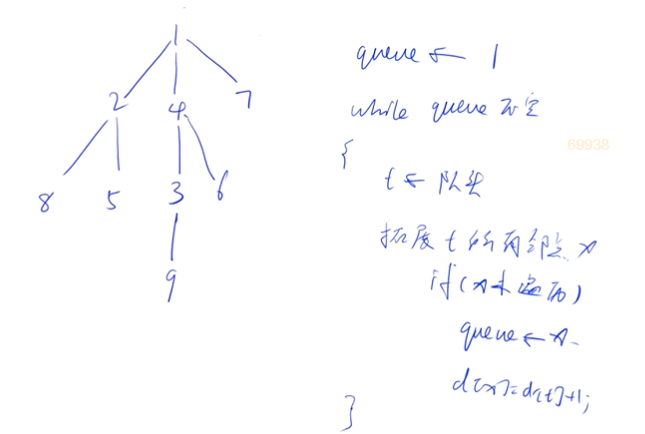 1
2 4 7
8 5 3 6
9
queue ← 1
while queue 不空
{
t ← 队头
拓展 t 的所有邻点 x
if (x未遍历)
queue ← x
d[x]=d[t]+1;
}
69938